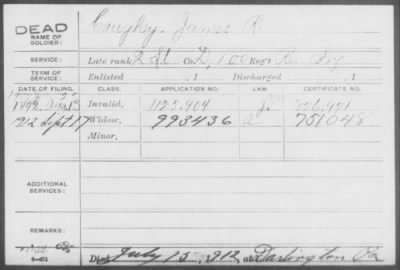 DEAD
NAME OF SOLDIER: Caughey, James R.
SERVICE: Late rank 2 Lt Co. D, 100 Reg't Pa. Inf
TERM OF SERVICE: Enlisted , 1 Discharged , 1
DATE OF FILING. CLASS. APPLICATION NO. LAW. CERTIFICATE NO.
1892 Aug 13 Invalid, 1125,904
1912 Sept 17 Widow, 993436 a 751048
Minor,
ADDITIONAL SERVICES:
REMARKS:
Died July 15 1912, at Darlington Pa